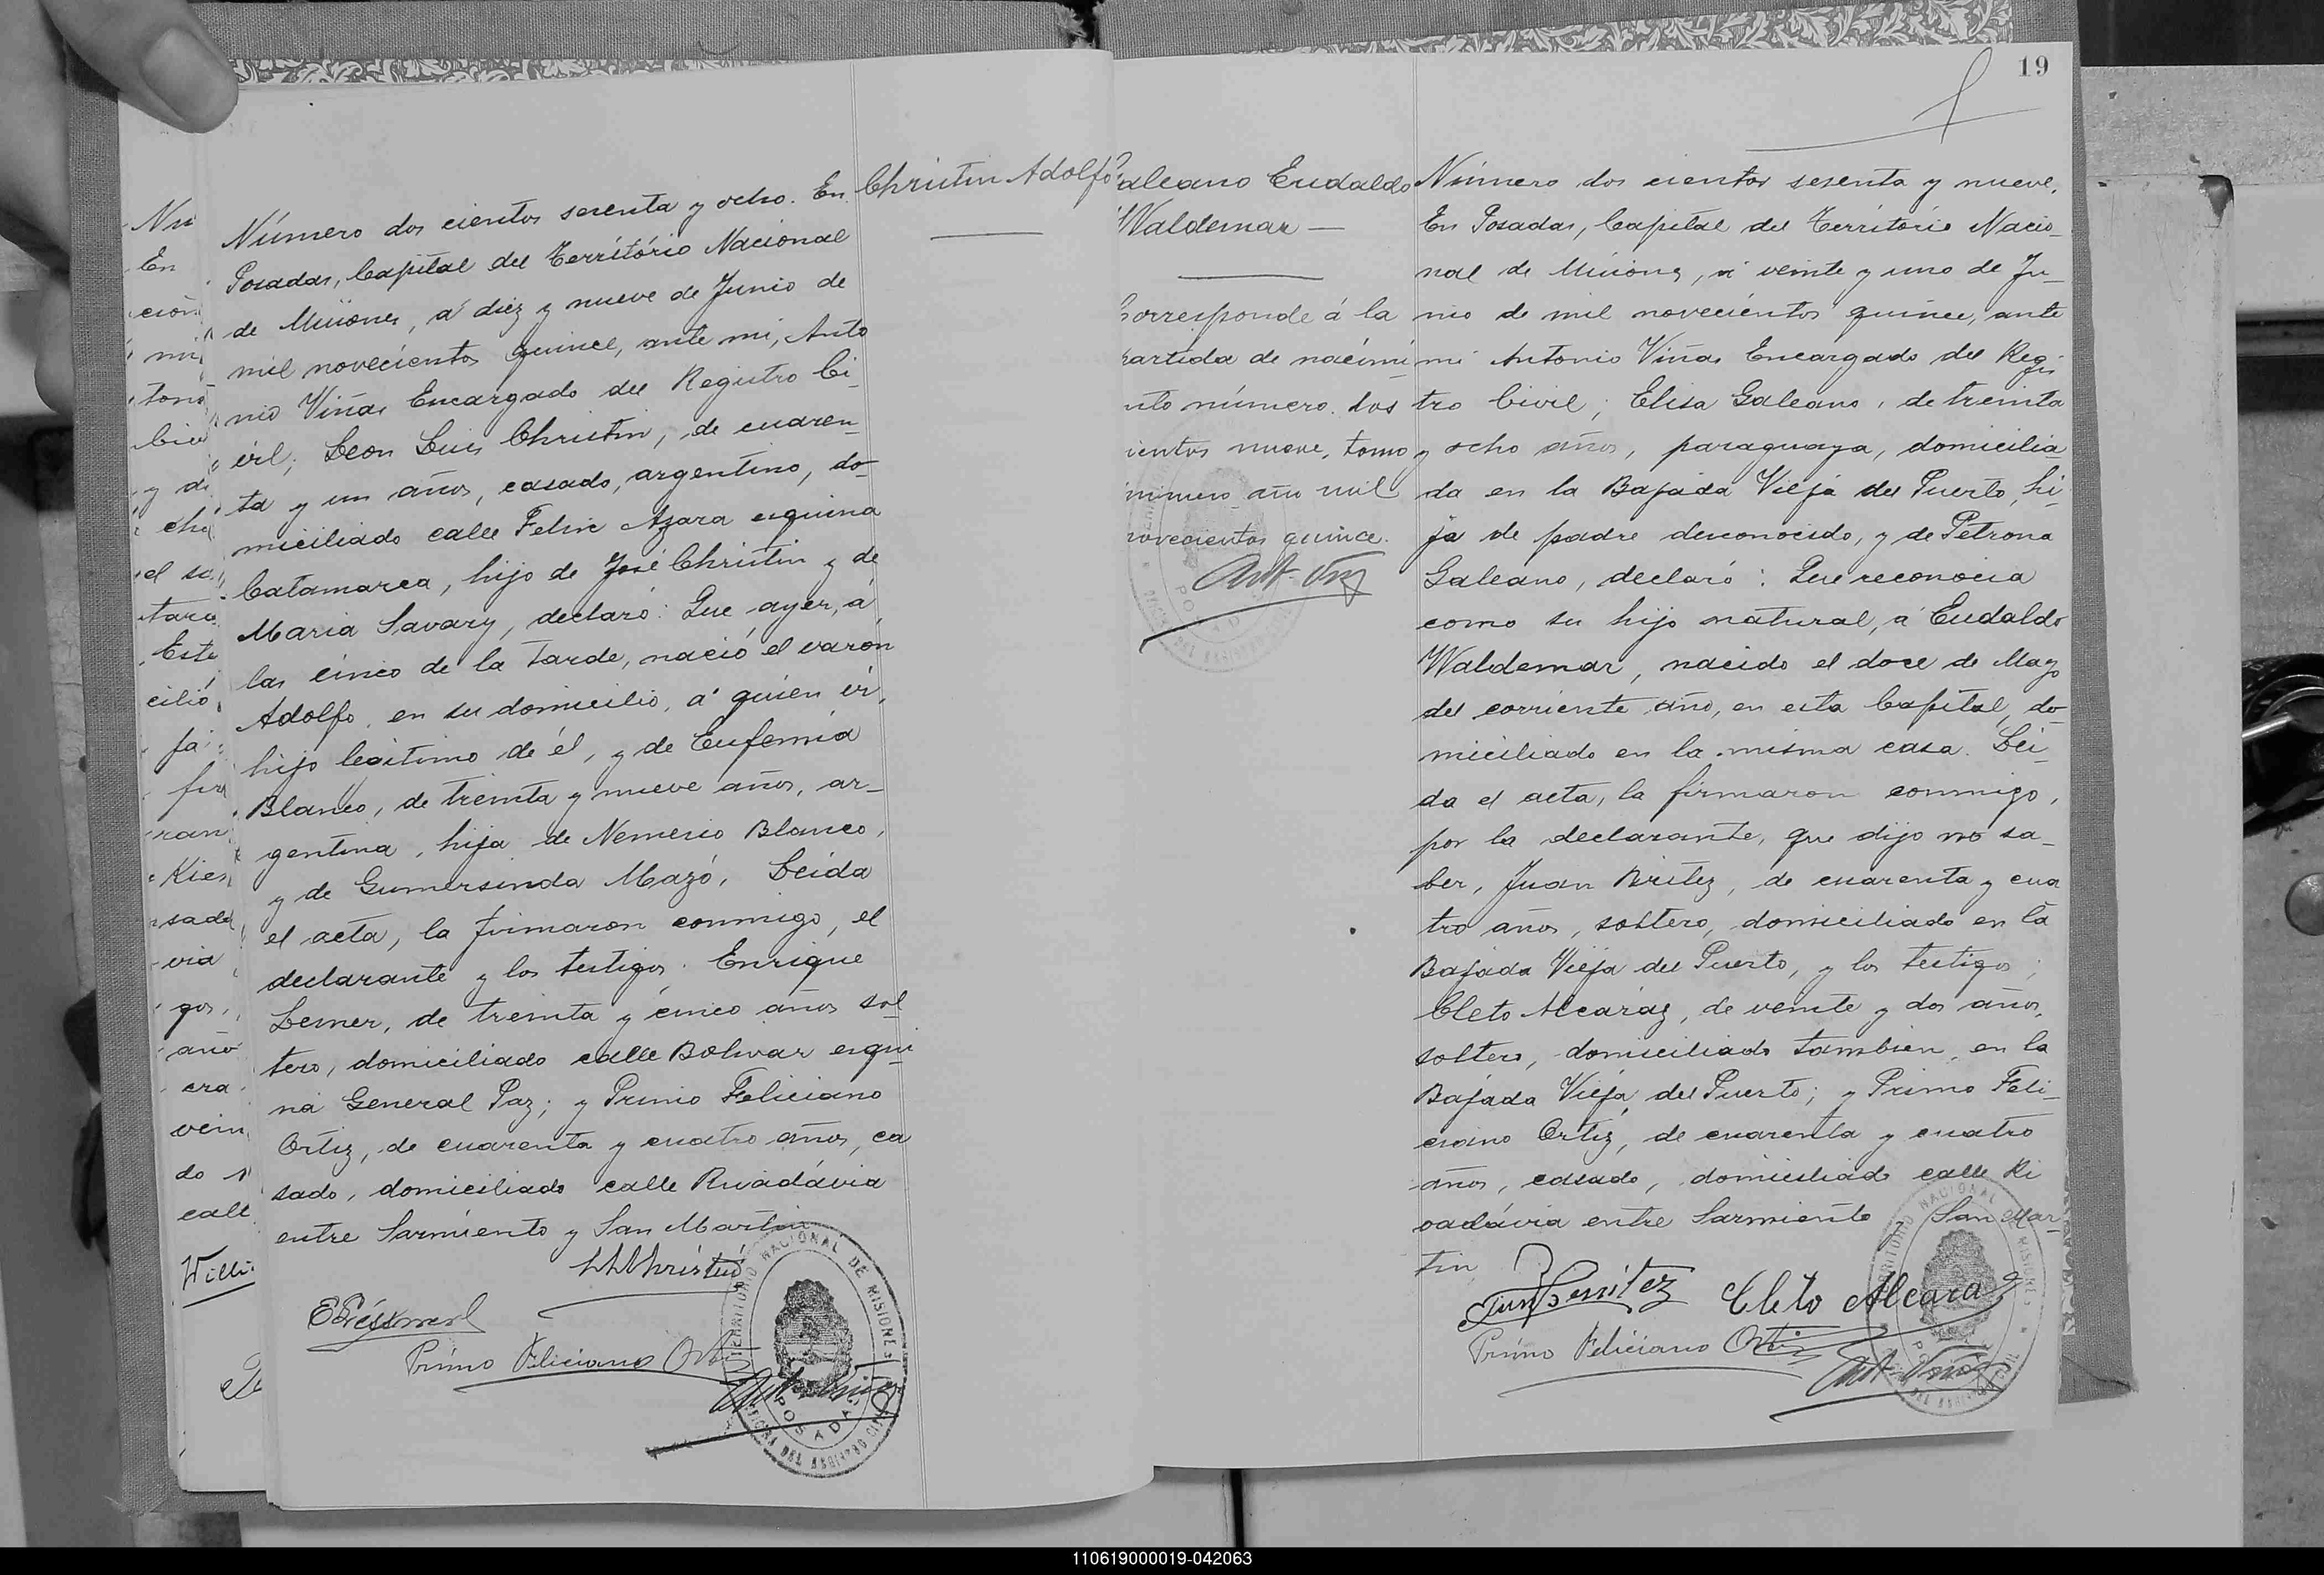 Christin Adolfo
Número dos cientos sesenta y ocho. En
Posadas, Capital del Território Nacional
de Misiones, á diez y nueve de Junio de
mil novecientos quince, ante mi, Anto
nio Viñas Encargado del Registro Ci-
vil; Leon Luis Christin, de cuaren-
ta y un años, casado, argentino, do-
miciliado calle Felix Azara esquina
Catamarca, hijo de José Christin y de
Maria Savary, declaró: Que ayer, á
las cinco de la tarde, nació el varón
Adolfo, en su domicilio, á quien vi,
hijo legítimo de él, y de Eufemia
Blanco, de treinta y nueve años, ar-
gentina, hija de Nemesio Blanco,
y de Gumersinda Mazó. Leida
el acta, la firmaron conmigo, el
declarante y los testigos. Enrique
de treinta y cinco años sol
tero, domiciliado calle Bolivar esqui
na General Paz; y Primo Feliciano
Ortiz, de cuarenta y cuatro años, ca
sado, domiciliado calle Rivadávia
entre Sarmiento y San Martin
Christin
Primo Feliciano Ortiz
Ant. Viñas
TERRITORIO NACIONAL DE MISIONES
POSADAS
19
Galeano Eudaldo
Waldemar —
Corresponde á la
partida de nacimi
ento número dos
cientos nueve, tomo
primero año mil
novecientos quince.
Ant. Viñas
Número dos cientos sesenta y nueve.
En Posadas, Capital del Território Nacio-
nal de Misiones, á veinte y uno de Ju-
nio de mil novecientos quince, ante
mi Antonio Viñas Encargado del Regis
tro Civil; Elisa Galeano, de treinta
y ocho años, paraguaya, domicilia
da en la Bajada Vieja del Puerto, hi-
ja de padre desconocido, y de Petrona
Galeano, declaró: Que reconocia
como su hijo natural, á Eudaldo
Waldemar, nacido el doce de Mayo
del corriente año, en esta Capital, do-
miciliado en la misma casa. Lei-
da el acta, la firmaron conmigo,
por la declarante, que dijo no sa-
ber, Juan Britez, de cuarenta y cua
tro años, soltero, domiciliado en la
Bajada Vieja del Puerto, y los testigos;
Cleto Alcaráz, de veinte y dos años,
soltero, domiciliado tambien, en la
Bajada Vieja, del Puerto; y Primo Feli-
ciano Ortiz, de cuarenta y cuatro
años, casado, domiciliado calle Ri
vadávia entre Sarmiento y San Mar-
tin
Juan Benitez Cleto Alcara
Primo Feliciano Ortiz
Ant. Viñas
110619000019-042063